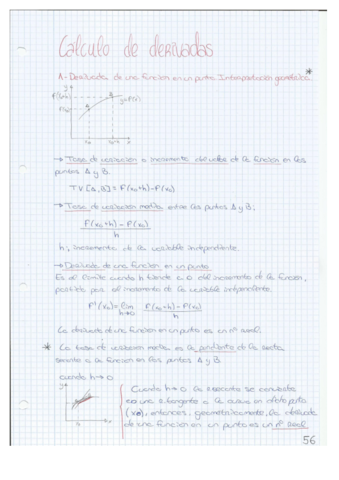 Calculo de derivadas
1- Derivada de una función en un punto. Interpretación geométrica. *
y
y=F(x)
x
→ Tasa de variación o incremento del valor de la función en los
puntos A y B.
TV[A,B] = F(x₀+h)-F(x₀)
→ Tasa de variación media entre los puntos A y B:
F(x₀+h) - F(x₀)
h
h: incremento de la variable independiente.
→ Derivada de una función en un punto.
Es el límite cuando h tiende a 0 del incremento de la función,
partido por el incremento de la variable independiente.
F'(x₀) = lim h→0 F(x₀+h) - F(x₀)
h
La derivada de una función en un punto es un nº real.
* La tasa de variación media es la pendiente de la recta
secante a la función en los puntos A y B.
cuando h→0
Cuando h→0 la secante se convierte
en una tangente a la curva en dicho punto
(x₀), entonces, geométricamente, la derivada
de una función en un punto es un nº real
56